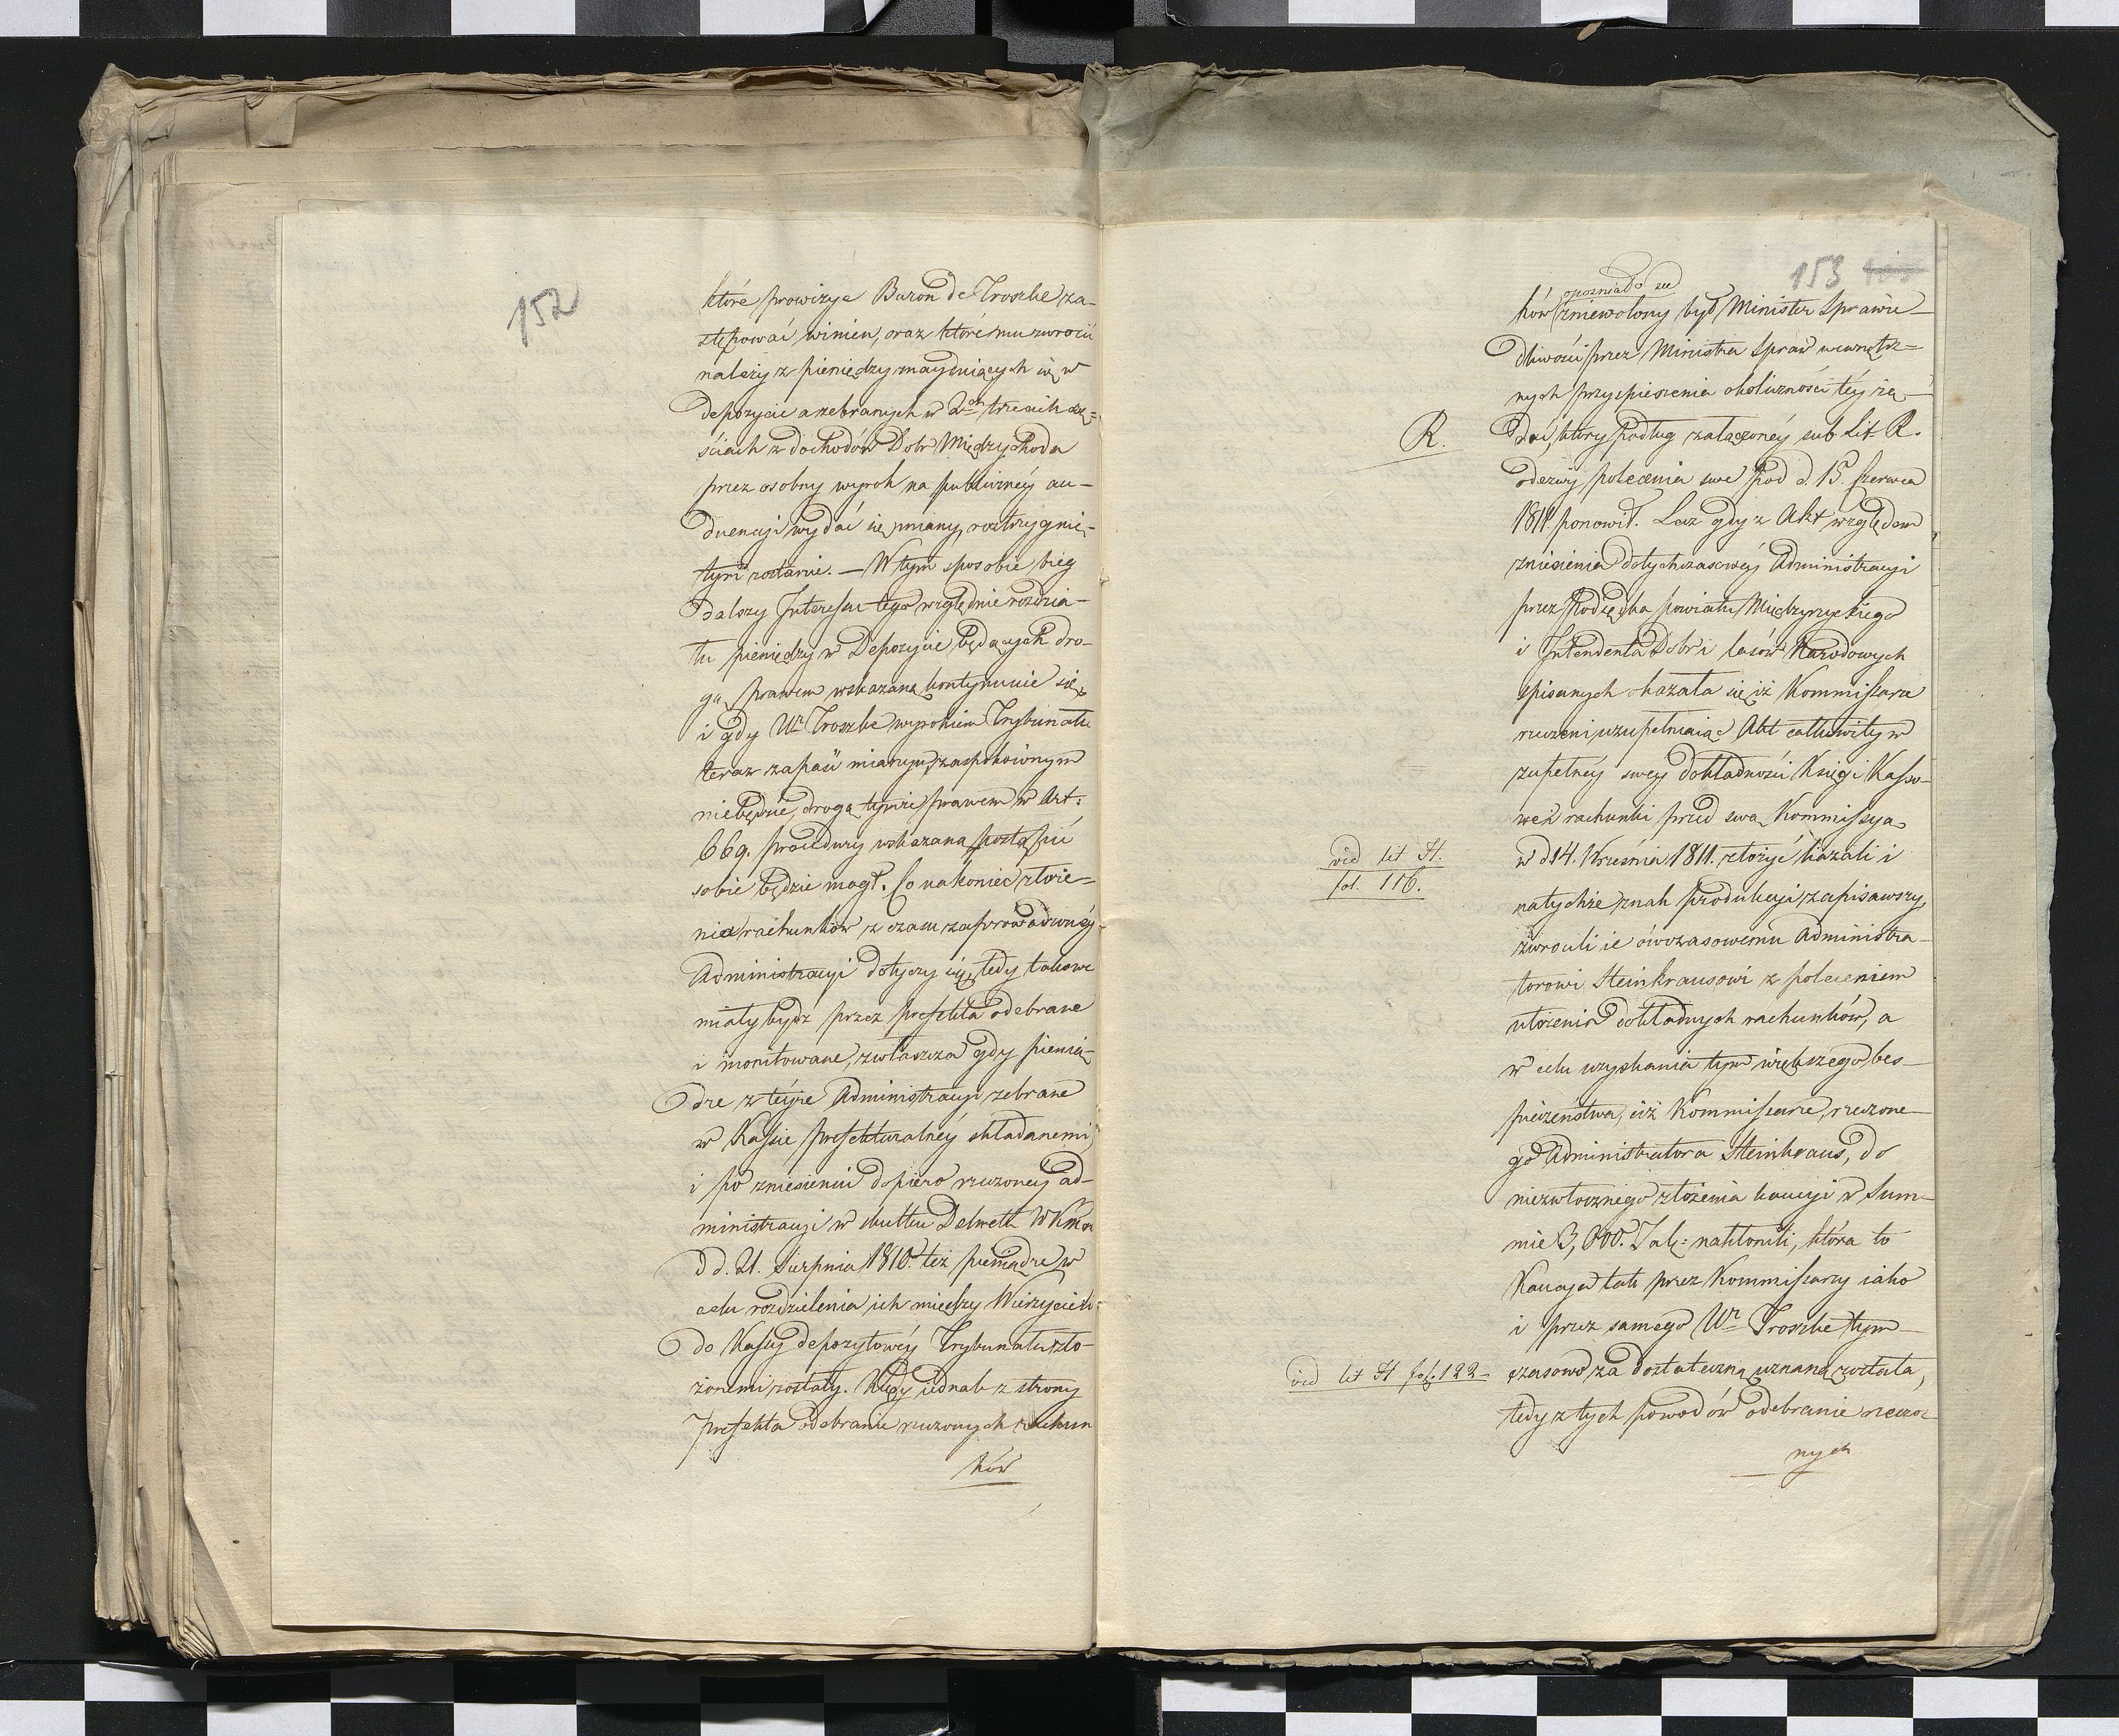 152
które prowizye Baron de Troszke za-
stępować winien, oraz które mu zwrocić
należy z pieniędzy znayduiących się w
depozycie a zebranych w 2ch trzecich czę-
ściach z dochodów Dobr Międzychoda
przez osobny wyrok na publiczney au-
dyencyi wydać się miany, rozstrzygnię-
tym zostanie. — W tym sposobie bieg
dalszy Interessu tego względnie rozdzia-
łu pieniędzy w Depozycie będących dro-
gą prawem wskazaną kontynuuie się,
i gdy Wr Troszke wyrokiem Trybunału
teraz zapaść maiącym zaspokoionym
niebędzie, drogą tymże prawem w Art:
669. procedury wskazaną postąpić
sobie będzie mogł. Co nakoniec złoże-
nia rachunków z czasu zaprowadzonéy
Administracyi dotyczy się, tedy takowe
miały bydź przez prefekta odebrane
i monitowane, zwłaszcza gdy pienią-
dze z téyże Administracyi zebrane
w Kassie prefekturalnéy składanemi,
i po zniesieniu dopiero rzeczonéy ad-
ministracyi w skutku Dekretu WKMci
d d. 21. Sierpnia 1810. też pieniądze w
celu rozdzielenia ich między Wierzycieli
do Kassy depozytowéy Trybunału zło-
żonemi zostały. Kiedy iednak z strony
prefekta odebranie rzeczonych rachun
ków
153
opozniało się
ków zniewolony był Minister Sprawie-
dliwości przez Ministra Spraw wewnętrz-
nych przyspieszenia okoliczności téy żą-
R.
dać, który podług załączonéy sub Lit. R.
odezwy polecenia swe pod d. 15. Czerwca
1811. ponowił. Lecz gdy z Akt względem
zniesienia dotychczasowéy Administracyi
przez Podsędka powiatu Międzyrzyckiego
i Intendenta Dobr i lasów Narodowych
spisanych okazało się iż Kommissarze
rzeczeni, uzupełniaiąc Akt całkowity w
zupełnéy swey dokładności Księgi Kasso-
we i rachunki przed swą Kommissyą
vid lit H.
fol. 116.
w d 14. Września 1811. złożyć kazali i
natychże znak produkcyi zapisawszy,
zwrocili ie ówczasowemu Administra-
torowi Steinkrausowi z poleceniem
ułożenia dokładnych rachunków, a
w celu uzyskania tym większego bes-
pieczenstwa, iż Kommissarze, rzeczone-
go Administratora Steinkraus, do
niezwłocznego złożenia kaucyi w Sum-
mie 3,000. Tal: nakłonili, która to
Kaucya tak przez Kommissarzy iako
i przez samego Wr Troszke tym-
vid lit H fol. 122
czasowo za dostateczną uznaną została,
tedy z tych powodów odebranie rzeczo-
nych